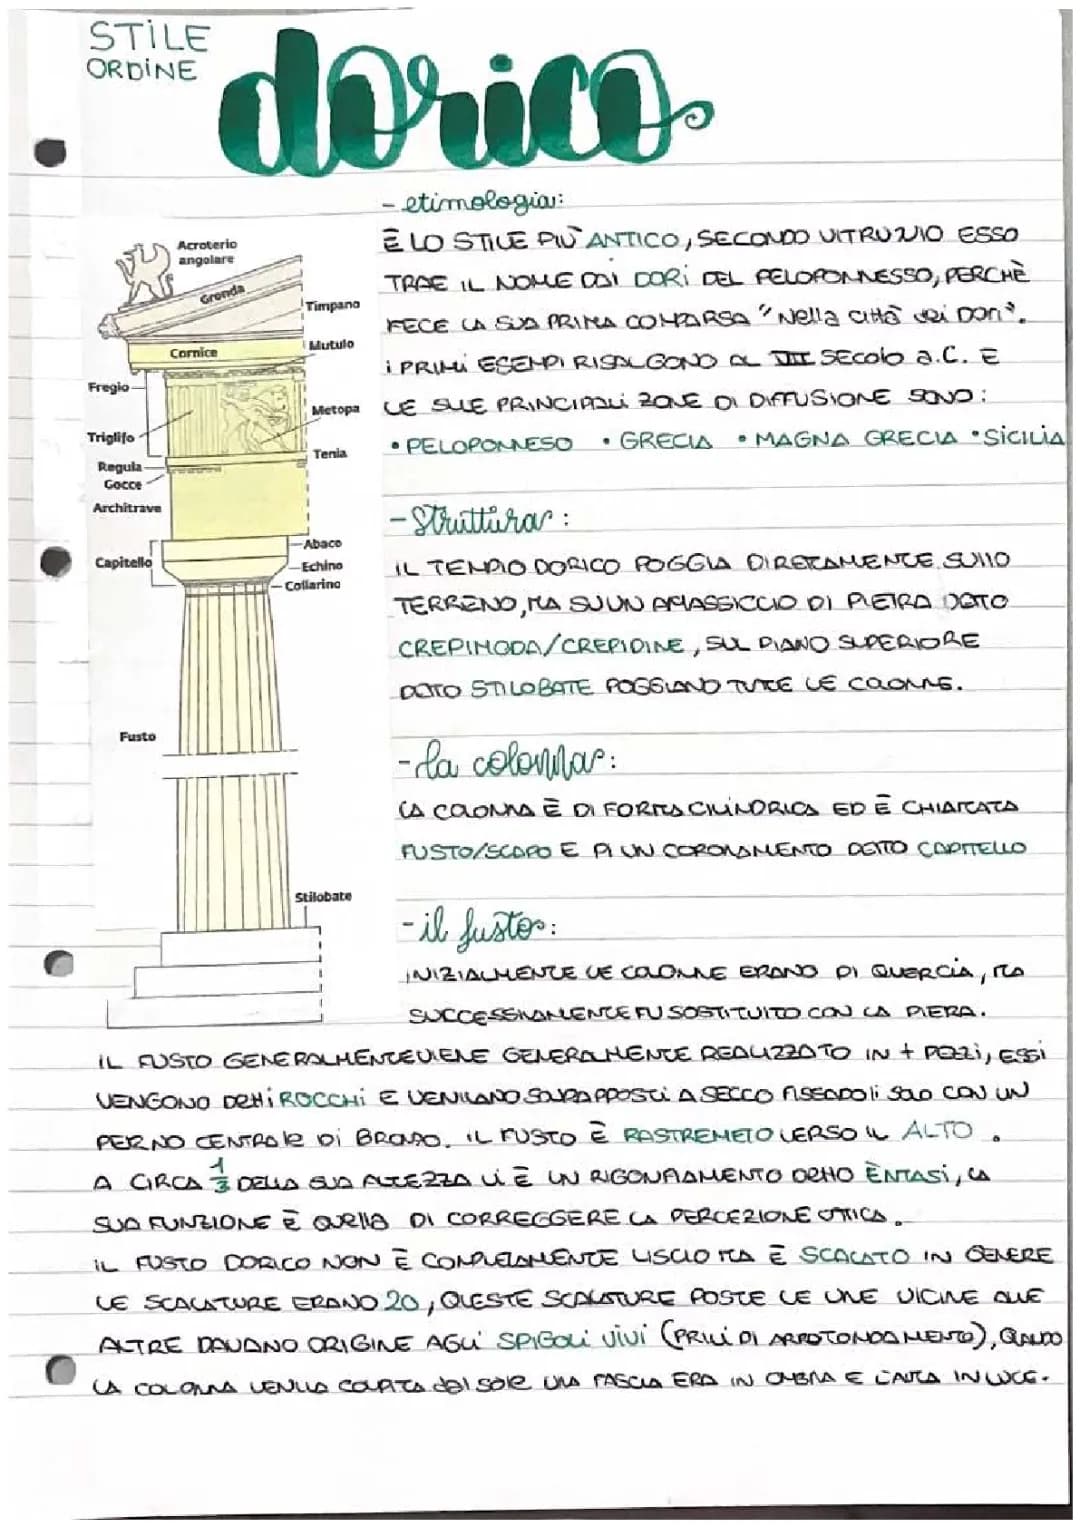 STILE
ORDINE
dorico
Acroterio
angolare
Gronda
Timpano
Cornice
Mutulo
Fregio
Metopa
Triglifo
Tenia
Regula
Gocce
Architrave
Abaco
Capitello
Echino
Collarino
Fusto
Stilobate
- etimologia:
È LO STILE PIÙ ANTICO, SECONDO VITRUVIO ESSO
TRAE IL NOME DAI DORI DEL PELOPONNESSO, PERCHÈ
FECE LA SUA PRIMA COMPARSA "Nella città dei Dori".
I PRIMI ESEMPI RISALGONO AL VII SECOLO a.C. E
LE SUE PRINCIPALI ZONE DI DIFFUSIONE SONO:
• PELOPONNESO • GRECIA • MAGNA GRECIA • SICILIA
- Struttura:
IL TEMPIO DORICO POGGIA DIRETAMENTE SULLO
TERRENO, MA SU UN AMASSICCIO DI PIETRA DETTO
CREPIMODA/CREPIDINE, SUL PIANO SUPERIORE
DETTO STILOBATE POGGIANO TUTTE LE COLONNE.
- la colonna:
LA COLONNA È DI FORMA CILINDRICA ED È CHIAMATA
FUSTO/SCAPO E DI UN CORONAMENTO DETTO CAPITELLO
- il fusto:
INIZIALMENTE LE COLONNE ERANO DI QUERCIA, MA
SUCCESSIVAMENTE FU SOSTITUITO CON LA PIERA.
IL FUSTO GENERALMENTE VIENE GENERALMENTE REALIZZATO IN + PEZZI, ESSI
VENGONO DETTI ROCCHI E VENIVANO SOVRAPPOSTI A SECCO FISSANDOLI SOLO CON UN
PERNO CENTRALE DI BRONZO. IL FUSTO È RASTREMETO VERSO IL ALTO.
A CIRCA 1/3 DELLA SUA ALTEZZA VI È UN RIGONFIAMENTO DETTO ÈNTASI, LA
SUA FUNZIONE È QUELLA DI CORREGGERE LA PERCEZIONE OTTICA.
IL FUSTO DORICO NON È COMPLETAMENTE LISCIO MA È SCALATO IN GENERE
LE SCALATURE ERANO 20, QUESTE SCALATURE POSTE LE UNE VICINE ALLE
ALTRE DAVANO ORIGINE AGLI SPIGOLI VIVI (PRIVI DI ARROTONDAMENTO), QUANDO
LA COLONNA VENIVA COLPITA dal sole UNA FASCIA ERA IN OMBRA E L'ALTRA IN LUCE.